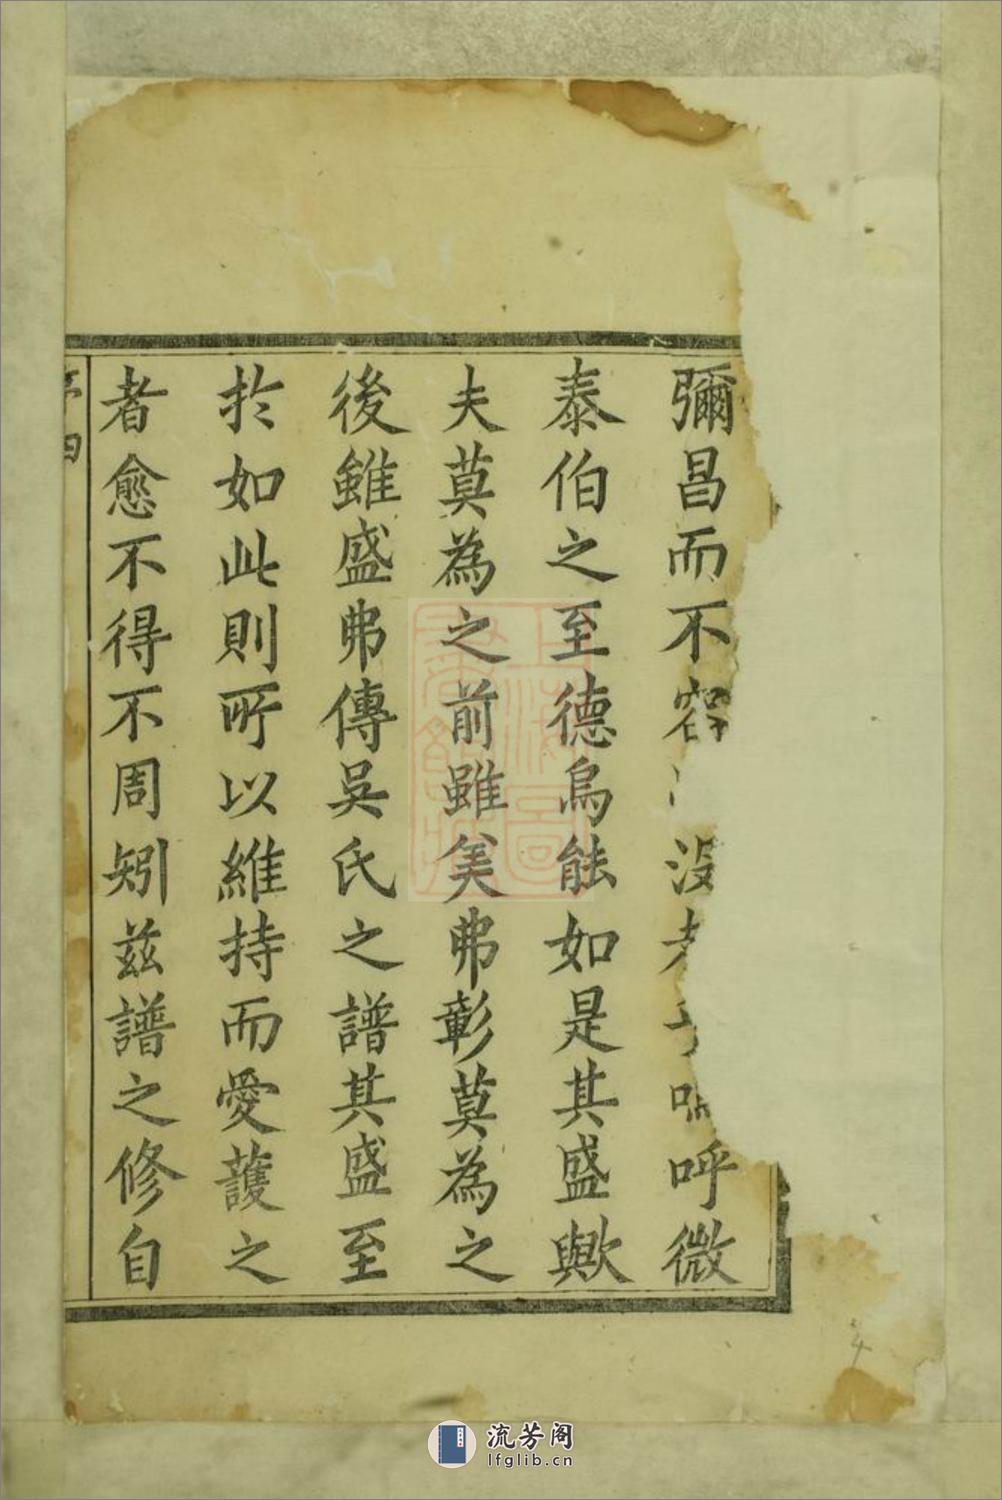 彌昌而不容沒者乎嗚呼微
泰伯之至德烏能如是其盛歟
夫莫為之前雖美弗彰莫為之
後雖盛弗傳吳氏之譜其盛至
於如此則所以維持而愛護之
者愈不得不周矧茲譜之修自
序四
上海圖書館藏
4
流芳阁
lfglib.cn